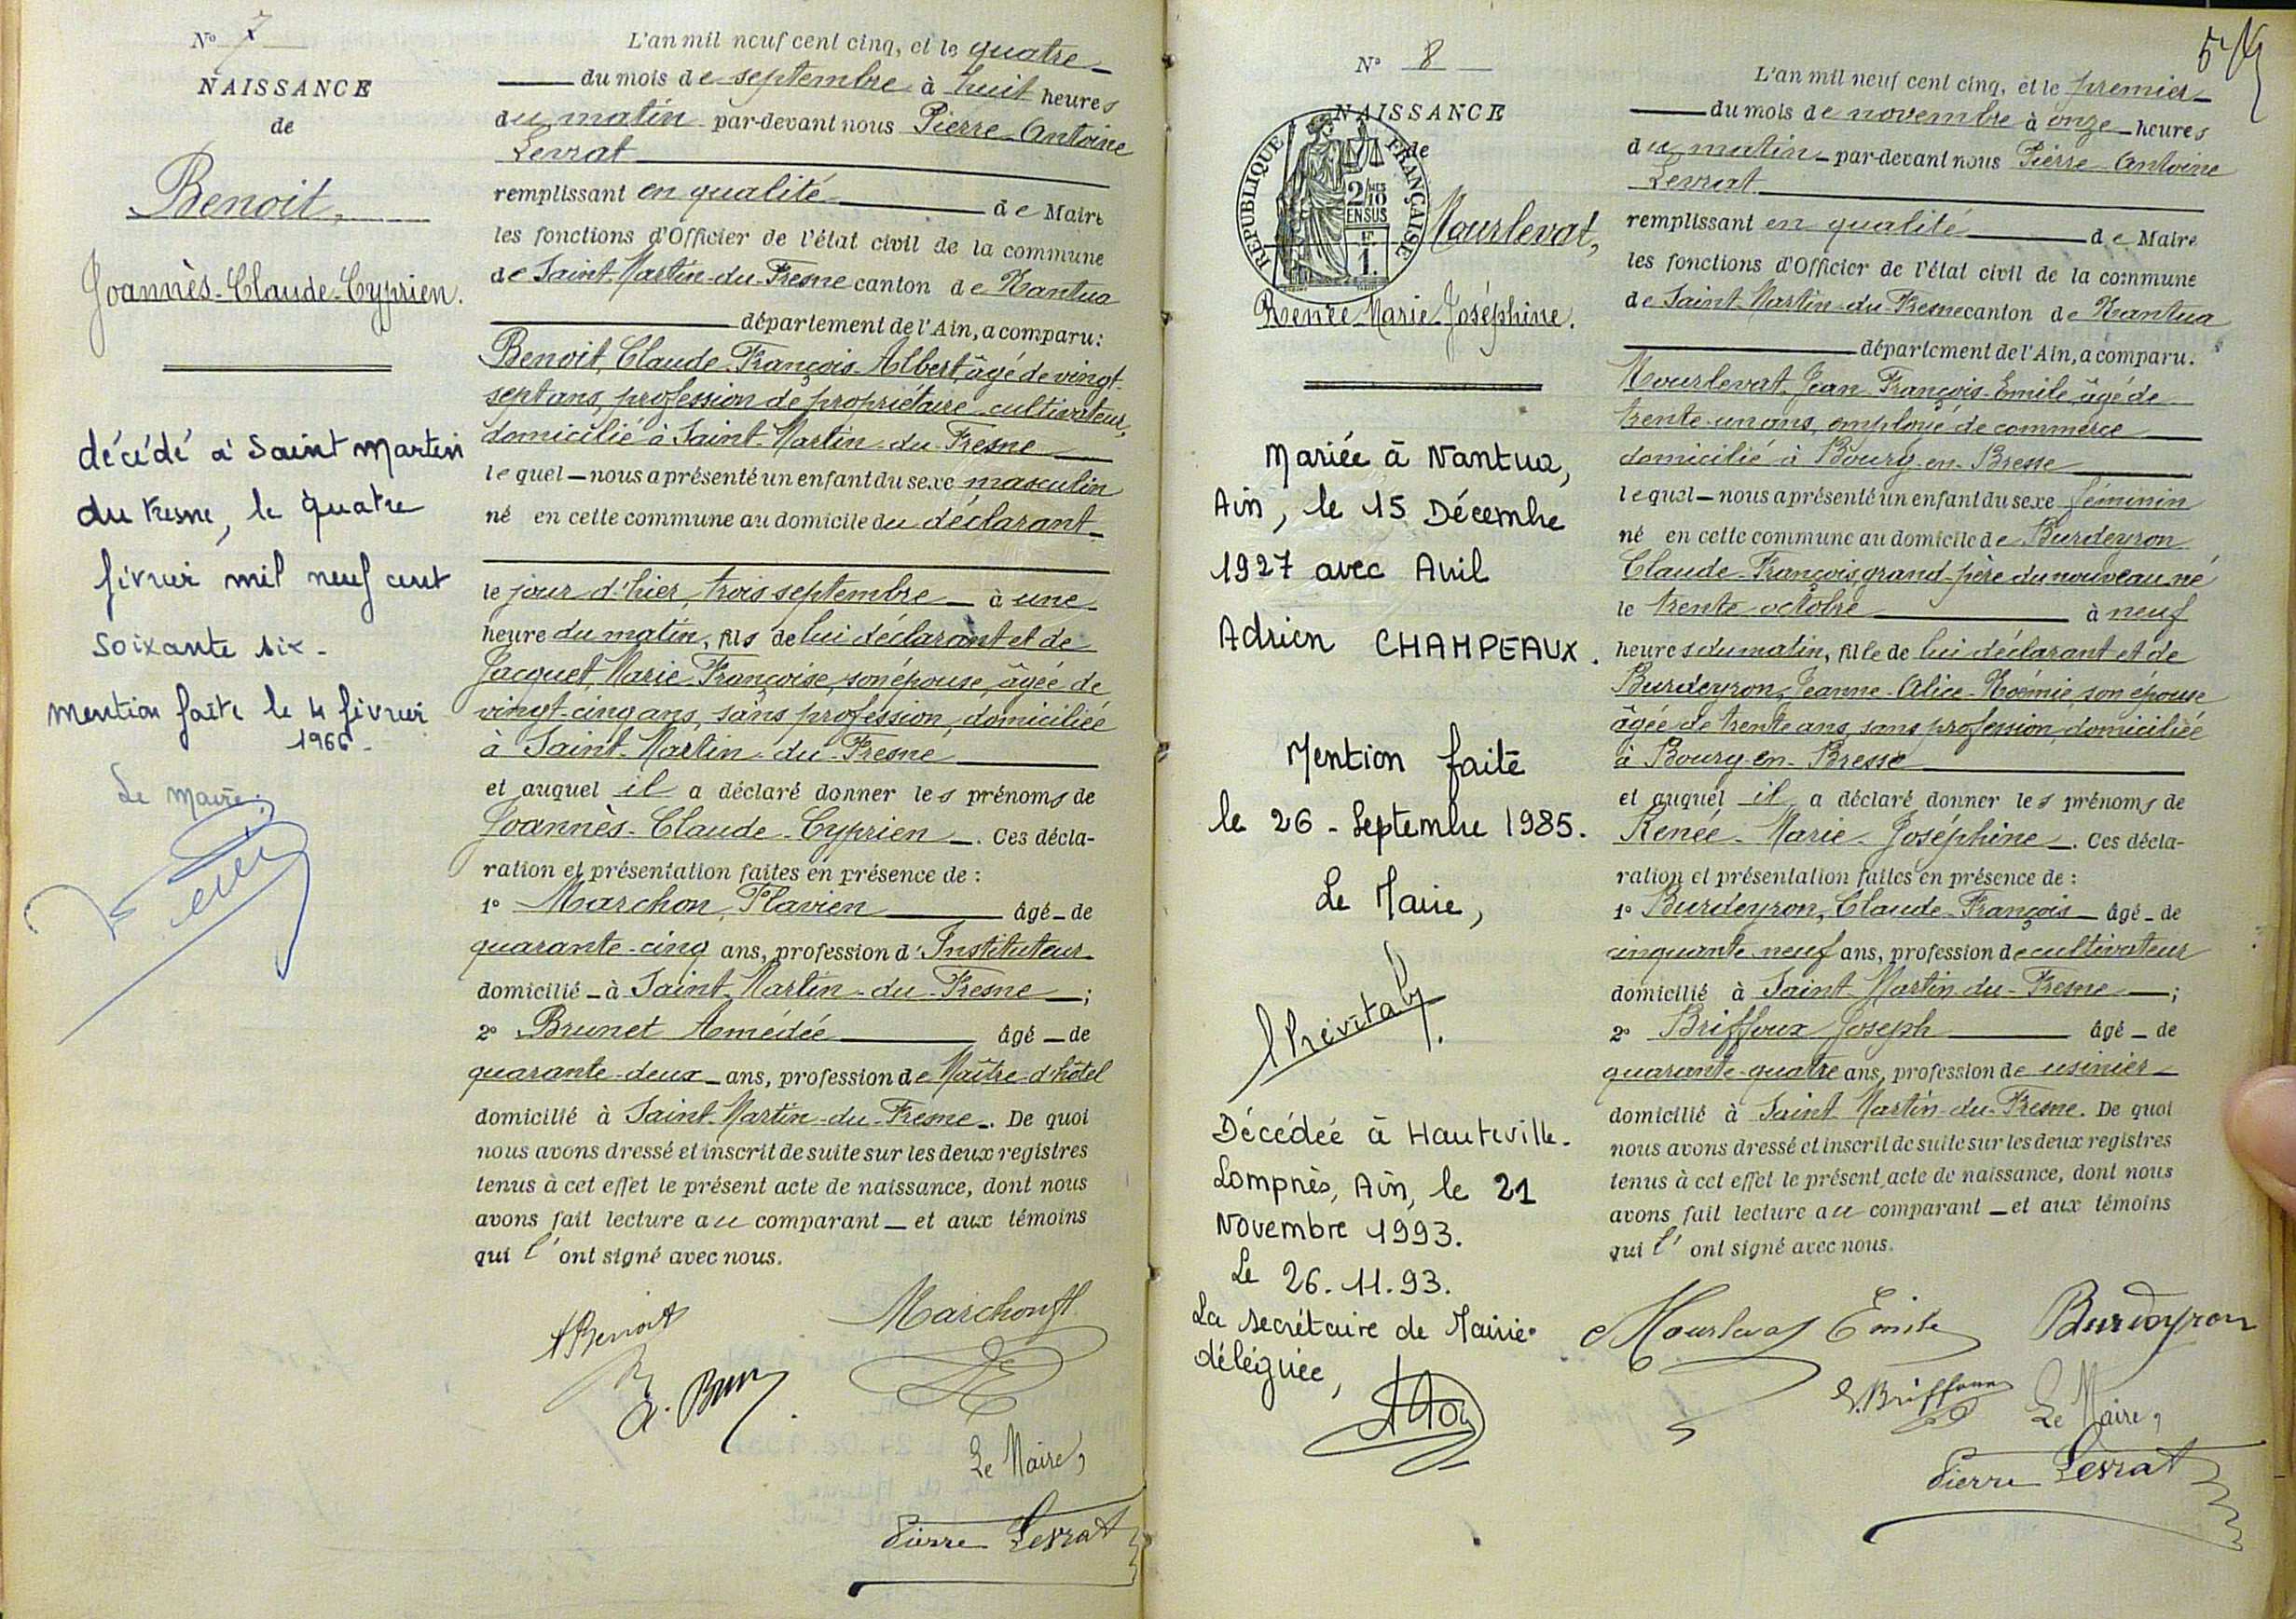 N° 7
NAISSANCE
de
Benoit,
Joannès-Claude-Cyprien.
décédé à Saint Martin
du Fresne, le quatre
février mil neuf cent
soixante six -
Mention faite le 4 février
1966 -
Le Maire:
L'an mil neuf cent cinq, et le quatre
du mois de septembre à huit heures
du matin par-devant nous Pierre-Antoine
Levrat
remplissant en qualité de Maire
les fonctions d'Officier de l'état civil de la commune
de Saint-Martin-du-Fresne canton de Nantua
département de l'Ain, a comparu:
Benoit, Claude-François-Albert, âgé de vingt-
sept ans, profession de propriétaire-cultivateur,
domicilié à Saint-Martin-du-Fresne
lequel — nous a présenté un enfant du sexe masculin
né en cette commune au domicile du déclarant
le jour d'hier, trois septembre à une
heure du matin, fils de lui déclarant et de
Jacquet, Marie-Françoise, son épouse, âgée de
vingt-cinq ans, sans profession, domiciliée
à Saint-Martin-du-Fresne
et auquel il a déclaré donner les prénoms de
Joannès-Claude-Cyprien. Ces décla-
ration et présentation faites en présence de :
1° Marchon, Flavien âgé de
quarante-cinq ans, profession d'Instituteur
domicilié à Saint-Martin-du-Fresne ;
2° Brunet Amédée âgé de
quarante-deux ans, profession de Maître-d'hôtel
domicilié à Saint-Martin-du-Fresne. De quoi
nous avons dressé et inscrit de suite sur les deux registres
tenus à cet effet le présent acte de naissance, dont nous
avons fait lecture au comparant — et aux témoins
qui l'ont signé avec nous.
ABenoit
Marchon fl
A. Brun
Le Maire,
Pierre Levrat
5
N° 8
NAISSANCE
de
RÉPUBLIQUE FRANÇAISE
2/10
EN SUS
1.
Mourlevat,
Renée-Marie-Joséphine.
Mariée à Nantua,
Ain, le 15 Décembre
1927 avec Avil
Adrien CHAMPEAUX.
Mention faite
le 26 - Septembre 1985.
Le Maire,
Décédée à Hauteville-
Lompnès, Ain, le 21
Novembre 1993.
Le 26.11.93.
La secrétaire de Mairie
déléguée,
L'an mil neuf cent cinq, et le premier
du mois de novembre à onze heures
du matin par-devant nous Pierre-Antoine
Levrat
remplissant en qualité de Maire
les fonctions d'Officier de l'état civil de la commune
de Saint-Martin-du-Fresne canton de Nantua
département de l'Ain, a comparu.
Mourlevat, Jean-François-Emile, âgé de
trente-un ans, employé de commerce
domicilié à Bourg-en-Bresse
lequel — nous a présenté un enfant du sexe féminin
né en cette commune au domicile de Burdeyron
Claude-François, grand-père du nouveau né
le trente octobre à neuf
heures du matin, fille de lui déclarant et de
Burdeyron, Jeanne-Alice-Noémie, son épouse
âgée de trente ans, sans profession, domiciliée
à Bourg-en-Bresse
et auquel il a déclaré donner les prénoms de
Renée-Marie-Joséphine. Ces décla-
ration et présentation faites en présence de :
1° Burdeyron, Claude-François âgé de
cinquante-neuf ans, profession de cultivateur
domicilié à Saint-Martin-du-Fresne ;
2° Briffoux Joseph âgé de
quarante-quatre ans, profession de usinier
domicilié à Saint-Martin-du-Fresne. De quoi
nous avons dressé et inscrit de suite sur les deux registres
tenus à cet effet le présent acte de naissance, dont nous
avons fait lecture au comparant — et aux témoins
qui l'ont signé avec nous.
Mourlevat Emile Burdeyron
J. Briffoux
Le Maire,
Pierre Levrat